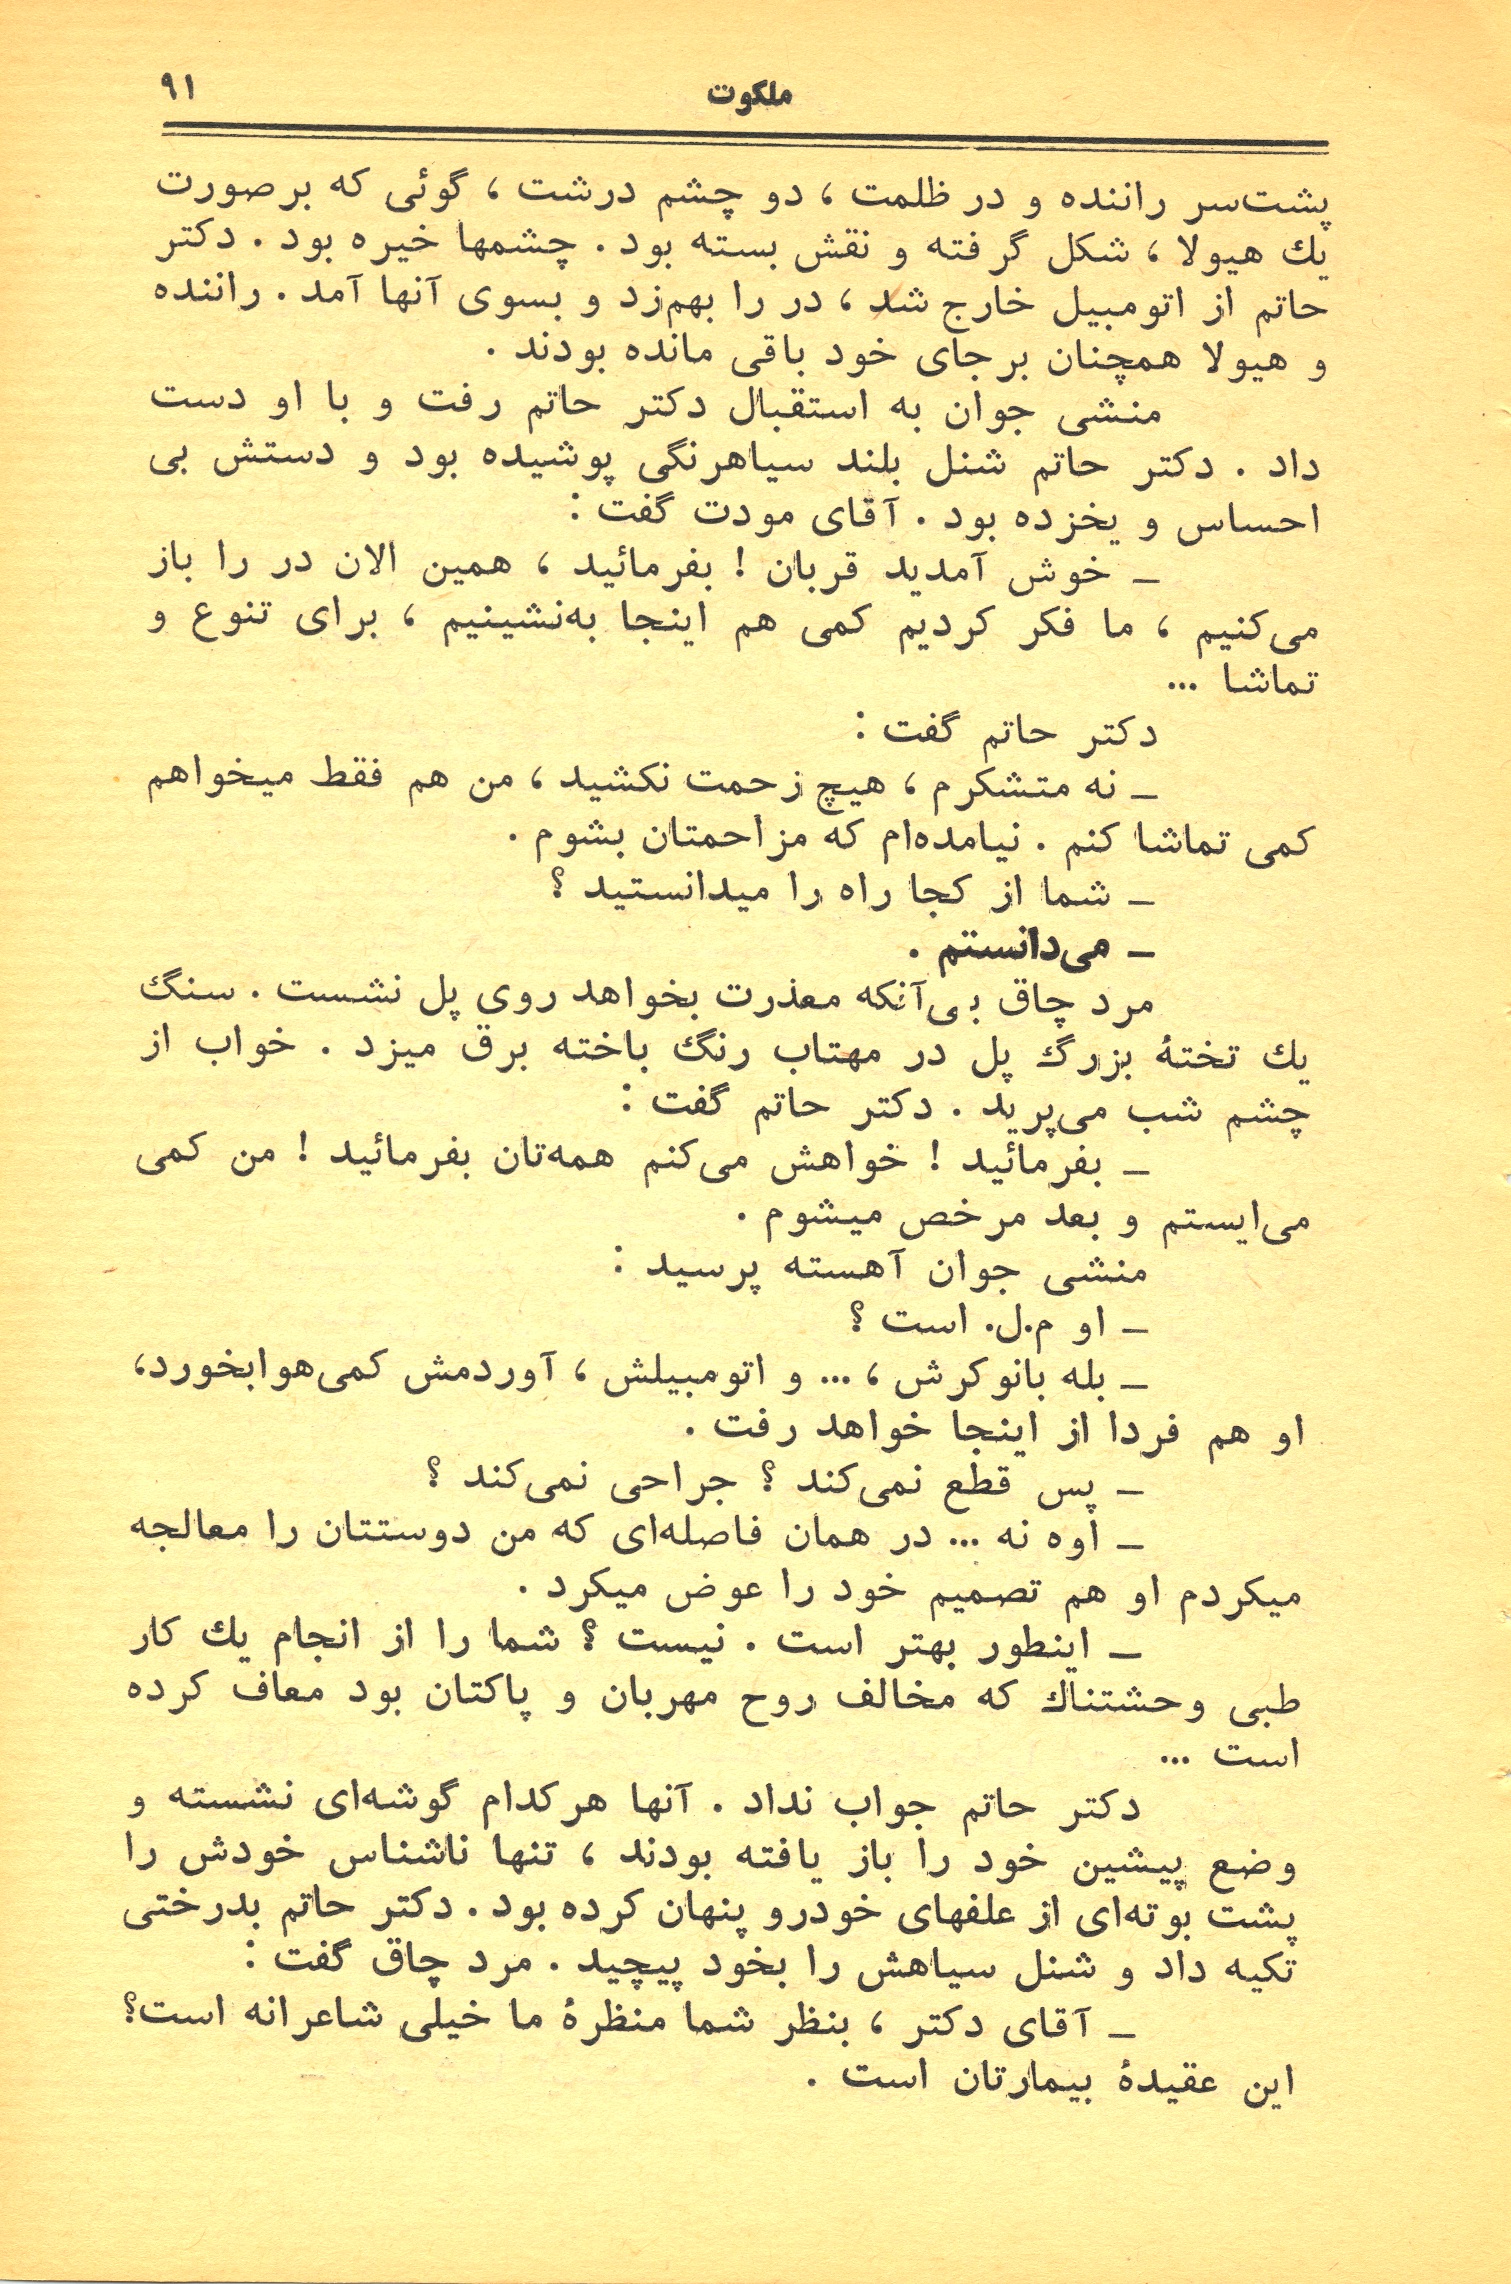 ملکوت ۹۱
پشت‌سر راننده و در ظلمت ، دو چشم درشت ، گوئی که بر صورت
یك هیولا ، شکل گرفته و نقش بسته بود . چشمها خیره بود . دکتر
حاتم از اتومبیل خارج شد ، در را بهم‌زد و بسوی آنها آمد . راننده
و هیولا همچنان بر جای خود باقی مانده بودند .
منشی جوان به استقبال دکتر حاتم رفت و با او دست
داد . دکتر حاتم شنل بلند سیاهرنگی پوشیده بود و دستش بی
احساس و یخزده بود . آقای مودت گفت :
ـ خوش آمدید قربان ! بفرمائید ، همین الان در را باز
می‌کنیم ، ما فکر کردیم کمی هم اینجا به‌نشینیم ، برای تنوع و
تماشا ...
دکتر حاتم گفت :
ـ نه متشکرم ، هیچ زحمت نکشید ، من هم فقط میخواهم
کمی تماشا کنم . نیامده‌ام که مزاحمتان بشوم .
ـ شما از کجا راه را میدانستید ؟
ـ می‌دانستم .
مرد چاق بی‌آنکه معذرت بخواهد روی پل نشست . سنگ
یك تختهٔ بزرگ پل در مهتاب رنگ باخته برق میزد . خواب از
چشم شب می‌پرید . دکتر حاتم گفت :
ـ بفرمائید ! خواهش می‌کنم همه‌تان بفرمائید ! من کمی
می‌ایستم و بعد مرخص میشوم .
منشی جوان آهسته پرسید :
ـ او م.ل. است ؟
ـ بله بانوکرش ، ... و اتومبیلش ، آوردمش کمی‌هوابخورد،
او هم فردا از اینجا خواهد رفت .
ـ پس قطع نمی‌کند ؟ جراحی نمی‌کند ؟
ـ اوه نه ... در همان فاصله‌ای که من دوستتان را معالجه
میکردم او هم تصمیم خود را عوض میکرد .
ـ اینطور بهتر است . نیست ؟ شما را از انجام یك کار
طبی وحشتناك که مخالف روح مهربان و پاکتان بود معاف کرده
است ...
دکتر حاتم جواب نداد . آنها هر کدام گوشه‌ای نشسته و
وضع پیشین خود را باز یافته بودند ، تنها ناشناس خودش را
پشت بوته‌ای از علفهای خودرو پنهان کرده بود . دکتر حاتم بدرختی
تکیه داد و شنل سیاهش را بخود پیچید . مرد چاق گفت :
ـ آقای دکتر ، بنظر شما منظرهٔ ما خیلی شاعرانه است؟
این عقیدهٔ بیمارتان است .